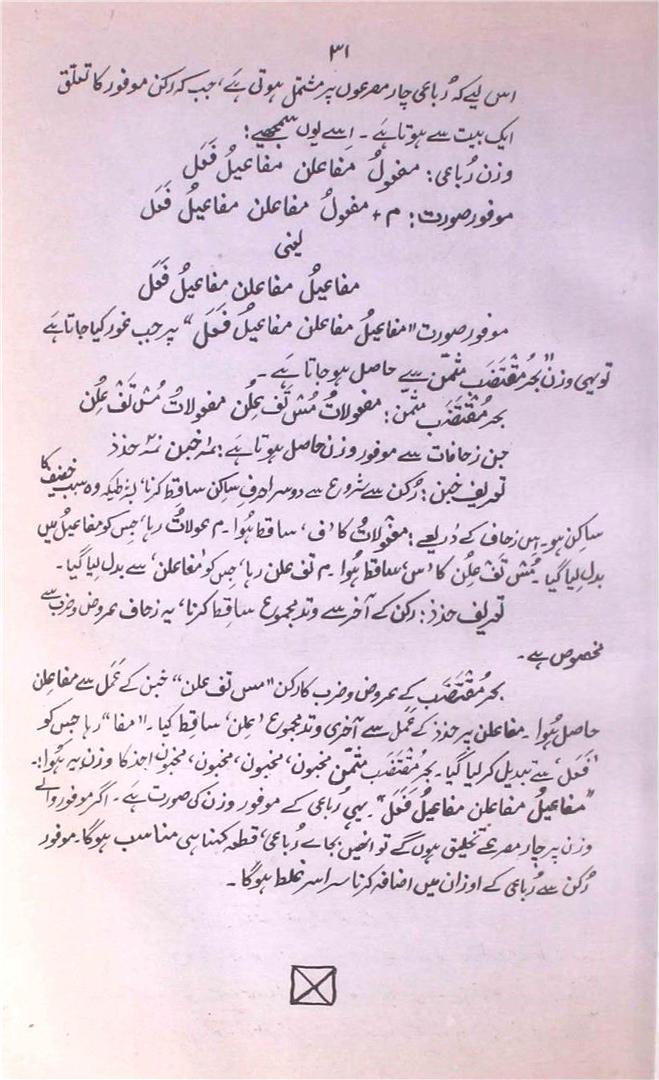 ۳۱
اس لیے کہ رُباعی چار مصرعوں پر مشتمل ہوتی ہے، جب کہ رکن موفور کا تعلق
ایک بیت سے ہوتا ہے۔ اِسے یوں سمجھیے:
وزن رُباعی: مفعولُ مفاعلن مفاعیلُ فَعَل
موفور صورت: م + مفعولُ مفاعلن مفاعیلُ فَعَل
یعنی
مفاعیلُ مفاعلن مفاعیلُ فَعَل
موفور صورت "مفاعیلُ مفاعلن مفاعیلُ فَعَل" پر جب غور کیا جاتا ہے
تو یہی وزن "بحر مُقْتَضَب مثمّن" سے حاصل ہو جاتا ہے۔
بحر مُقْتَضَب مثمّن: مفعولاتُ مُسْ تَفْ عِلُن مفعولاتُ مُسْ تَفْ عِلُن
جن زحافات سے موفور وزن حاصل ہوتا ہے: نمبر۱ خبن نمبر۲ حذذ
تعریف خبن: رُکن کے شروع سے دوسرا حرفِ ساکن ساقط کرنا، بشرطیکہ وہ سببِ خفیف کا
ساکن ہو۔ اِس زحاف کے ذریعے: مفعولاتُ کا 'ف' ساقط ہُوا۔ م عولاتُ رہا، جس کو مفاعیلُ میں
بدل لیا گیا۔ مُسْ تَفْ عِلُن کا 'س' ساقط ہُوا۔ م تف علن رہا، جس کو 'مفاعلن' سے بدل لیا گیا۔
تعریف حذذ: رکن کے آخر سے وتد مجموع ساقط کرنا، یہ زحاف عروض و ضرب سے
مخصوص ہے۔
بحر مُقْتَضَب کے عروض و ضرب کا رکن "مس تف علن" خبن کے عَمَل سے مفاعلن
حاصل ہُوا۔ مفاعلن پر حذذ کے عَمَل سے آخری وتد مجموع 'علن' ساقط کیا۔ "مفا" رہا جس کو
'فَعَل' سے تبدیل کر لیا گیا۔ بحر مُقْتَضَب مثمّن مخبون، مخبون، مخبون، مخبون احذ کا وزن یہ ہُوا:۔
"مفاعیلُ مفاعلن مفاعیلُ فَعَل"۔ یہی رُباعی کے موفور وزن کی صورت ہے۔ اگر موفور والے
وزن پر چار مصرعے تخلیق ہوں گے تو انھیں بجاے رُباعی، قطعہ کہنا ہی مناسب ہوگا۔ موفور
رُکن سے رُباعی کے اوزان میں اضافہ کرنا سراسر غلط ہوگا۔